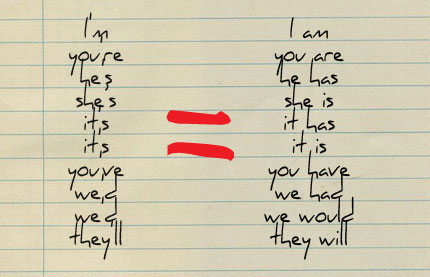 I'm I am
you're you are
he's he has
she's she is
it's it has
it's it is
you've you have
we'd we had
we'd we would
they'll they will